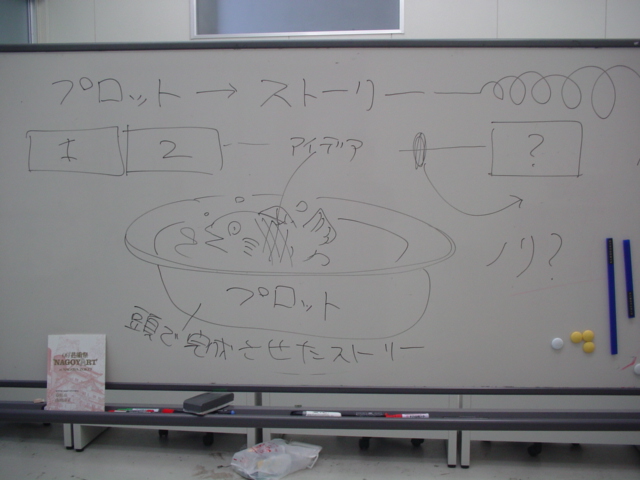 プロット → ストーリー
1 2 アイデア ?
ノリ?
プロット
頭で完成させたストーリー
NAGOYART